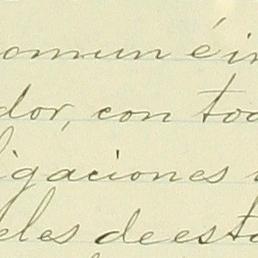 omun é in
dor, con tod
igaciones
eles de esta